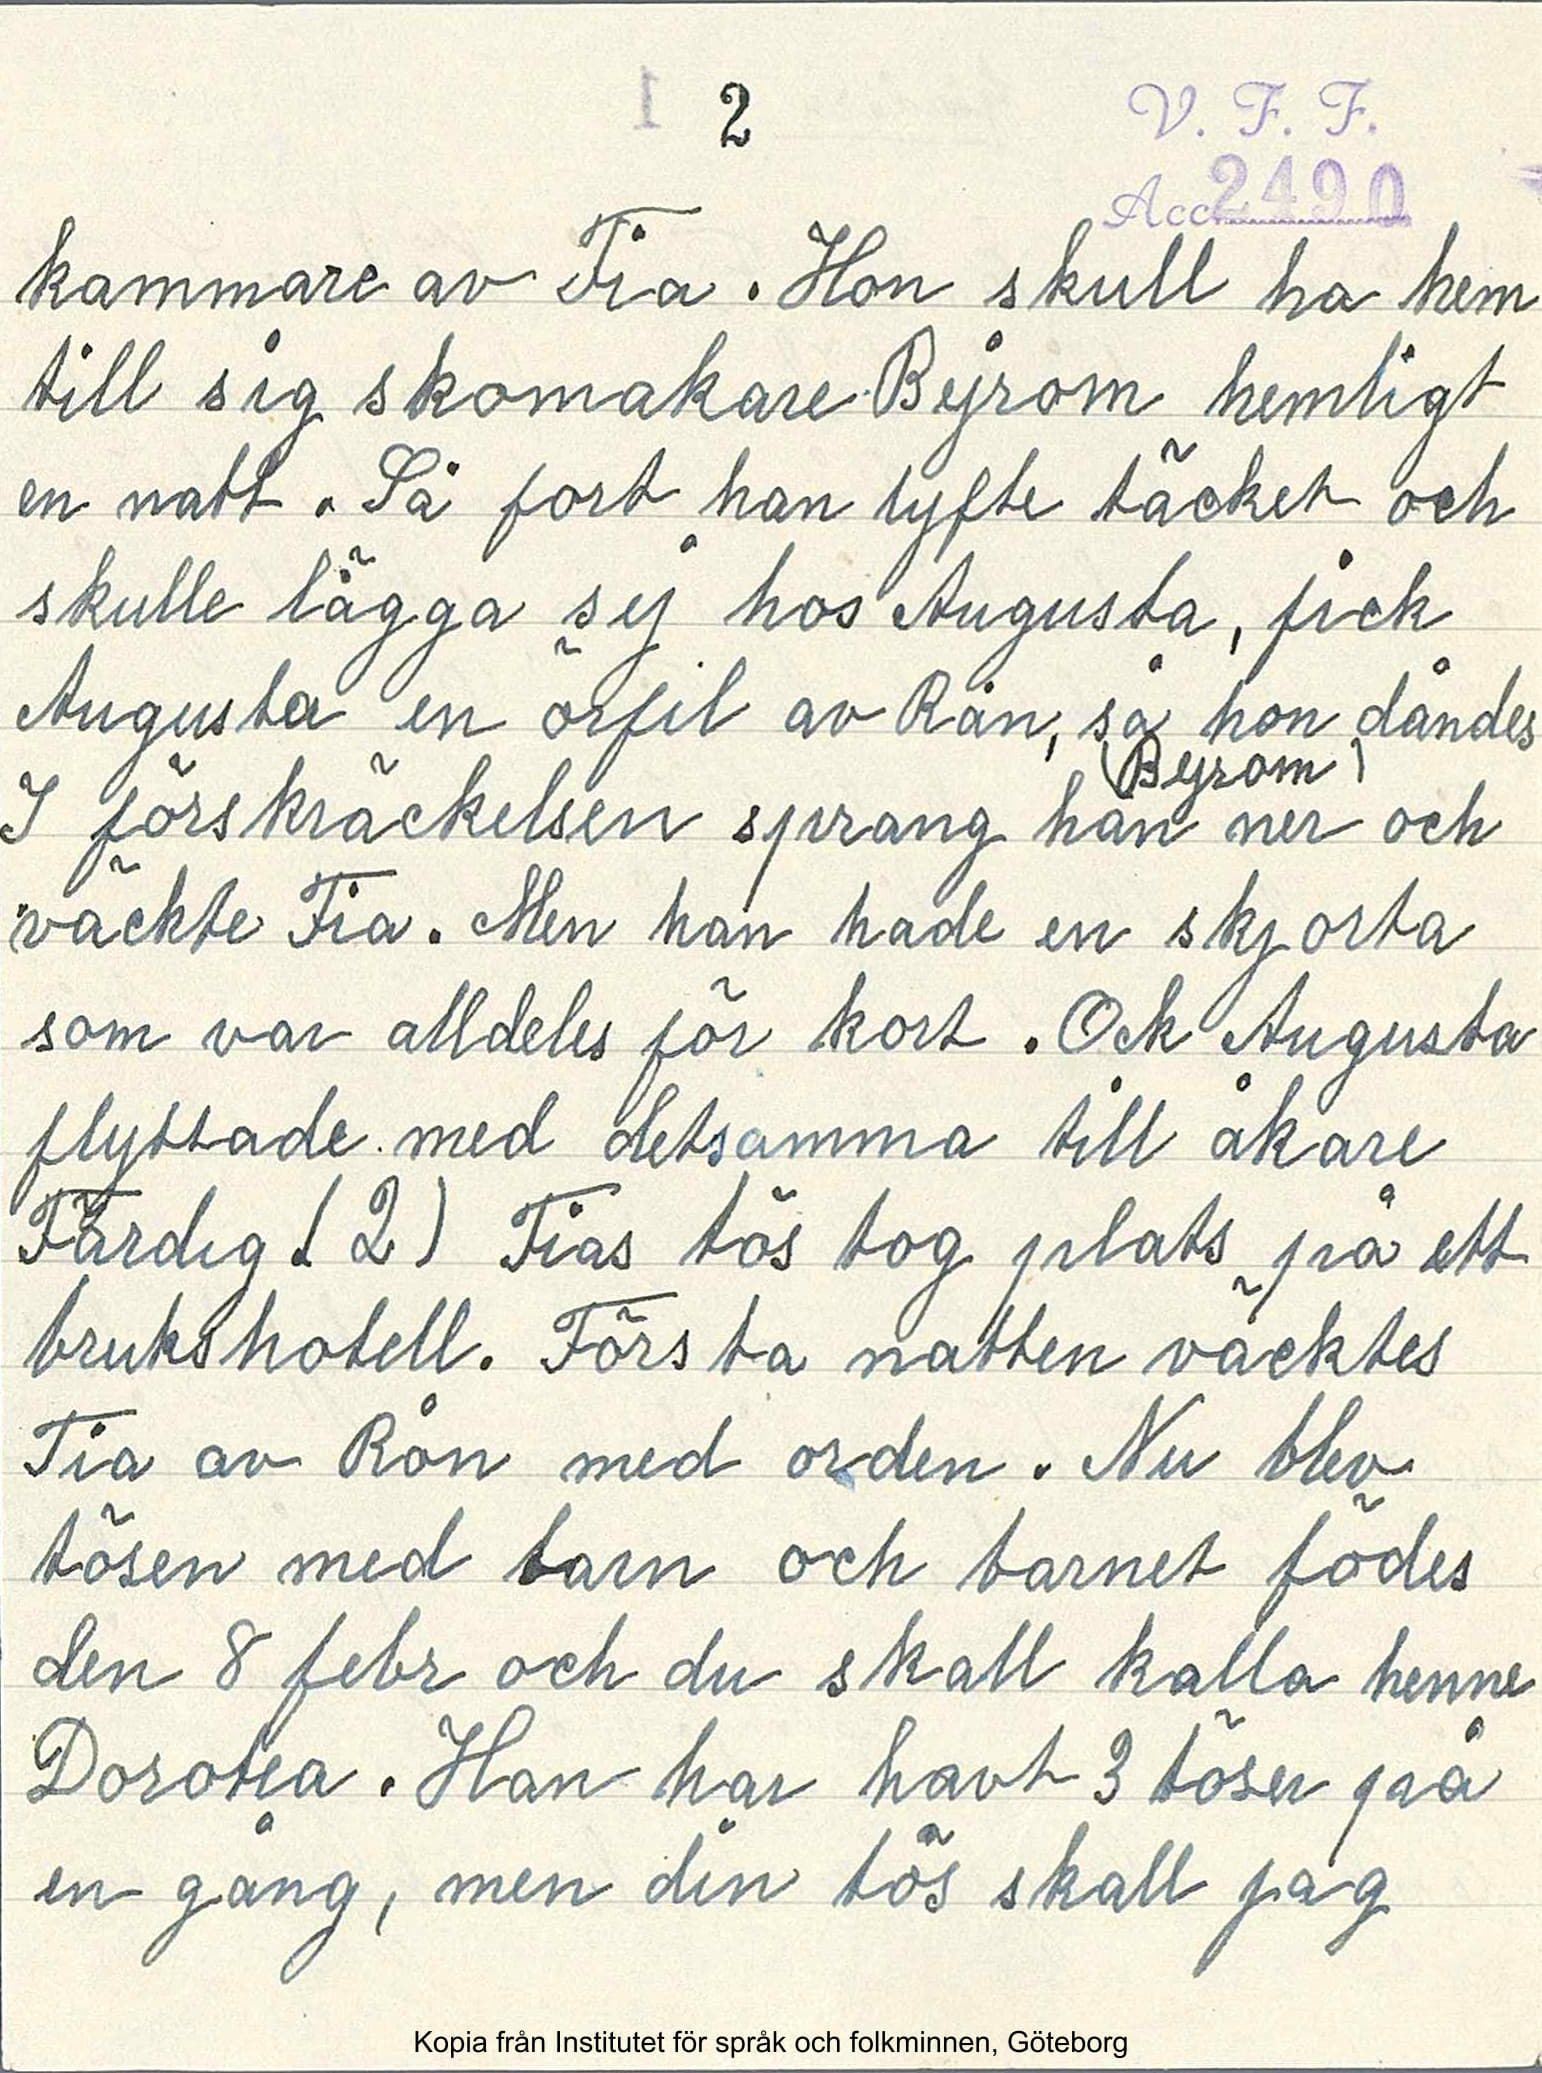 1 2 V. F. F.
Acc. 2490
kammare av Fia. Hon skull ha hem
till sig skomakare Byrom hemligt
en natt. Så fort han lyfte täcket och
skulle lägga sej hos Augusta, fick
Augusta en örfil av Rån, så hon dåndes
(Byrom)
I förskräckelsen sprang han ner och
väckte Fia. Men han hade en skjorta
som var alldeles för kort. Ock Augusta
flyttade med detsamma till åkare
Färdig. (2) Fias tös tog plats på ett
brukshotell. Första natten väcktes
Fia av Rån med orden. Nu blev
tösen med barn och barnet födes
den 8 febr och du skall kalla henne
Dorotea. Han har havt 3 töser på
en gång, men din tös skall jag
Kopia från Institutet för språk och folkminnen, Göteborg